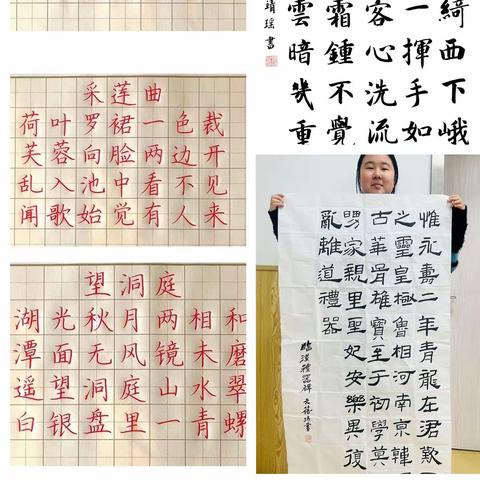 采莲曲
荷叶罗裙一色裁
芙蓉向脸两边开
乱入池中看不见
闻歌始觉有人来
望洞庭
湖光秋月两相和
潭面无风镜未磨
遥望洞庭山水翠
白银盘里一青螺
綺西下峨
一揮手如
客心洗流
霜鍾不覺
雲暗幾重
靖瑶書
惟永壽二年青龍在涒歎
之靈皇極魯相河南京韓
古華胥雄寶至于初學莫
舅家親里聖妃安樂異復
亂離道禮器
臨漢禮器碑